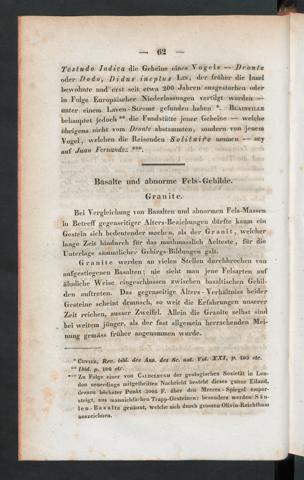 — 62 —
Testudo Indica die Gebeine eines Vogels — Dronte
oder Dodo, Didus ineptus LIN, der früher die Insel
bewohnte und erst seit etwa 200 Jahren ausgestorben oder
in Folge Europäischer Niederlassungen vertilgt worden —
unter einem Laven-Strome gefunden haben *. BLAINVILLE
behauptet jedoch ** die Fundstätte jener Gebeine — welche
übrigens nicht vom Dronte abstammten, sondern von jenem
Vogel, welchen die Reisenden Solitaire nennen — sey
auf Juan Fernandez ***.
Basalte und abnorme Fels-Gebilde.
Granite.
Bei Vergleichung von Basalten und abnormen Fels-Massen
in Betreff gegenseitiger Alters-Beziehungen dürfte kaum ein
Gestein sich bedeutender machen, als der Granit, welcher
lange Zeit hindurch für das muthmasslich Aelteste, für die
Unterlage sämmtlicher Gebirgs-Bildungen galt.
Granite werden an vielen Stellen durchbrochen von
aufgestiegenen Basalten; nie sieht man jene Felsarten auf
ähnliche Weise eingeschlossen zwischen basaltischen Gebil-
den auftreten. Das gegenseitige Alters-Verhältniss beider
Gesteine scheint demnach, so weit die Erfahrungen unserer
Zeit reichen, ausser Zweifel. Allein die Granite selbst sind
bei weitem jünger, als der fast allgemein herrschenden Mei-
nung gemäss früher angenommen wurde.
* CUVIER, Rev. bibl. des Ann. des Sc. nat. Vol. XXI, p. 103 etc.
** Ibid. p. 106 etc.
*** Zu Folge einer von CALDCLEUGH der geologischen Societät in Lon-
don neuerdings mitgetheilten Nachricht besteht dieses ganze Eiland,
dessen höchster Punkt 3005 F. über den Meeres-Spiegel empor-
steigt, aus mannichfachen Trapp-Gesteinen; besonders werden Säu-
len-Basalte genannt, welche sich durch grossen Olivin-Reichthum
auszeichnen.